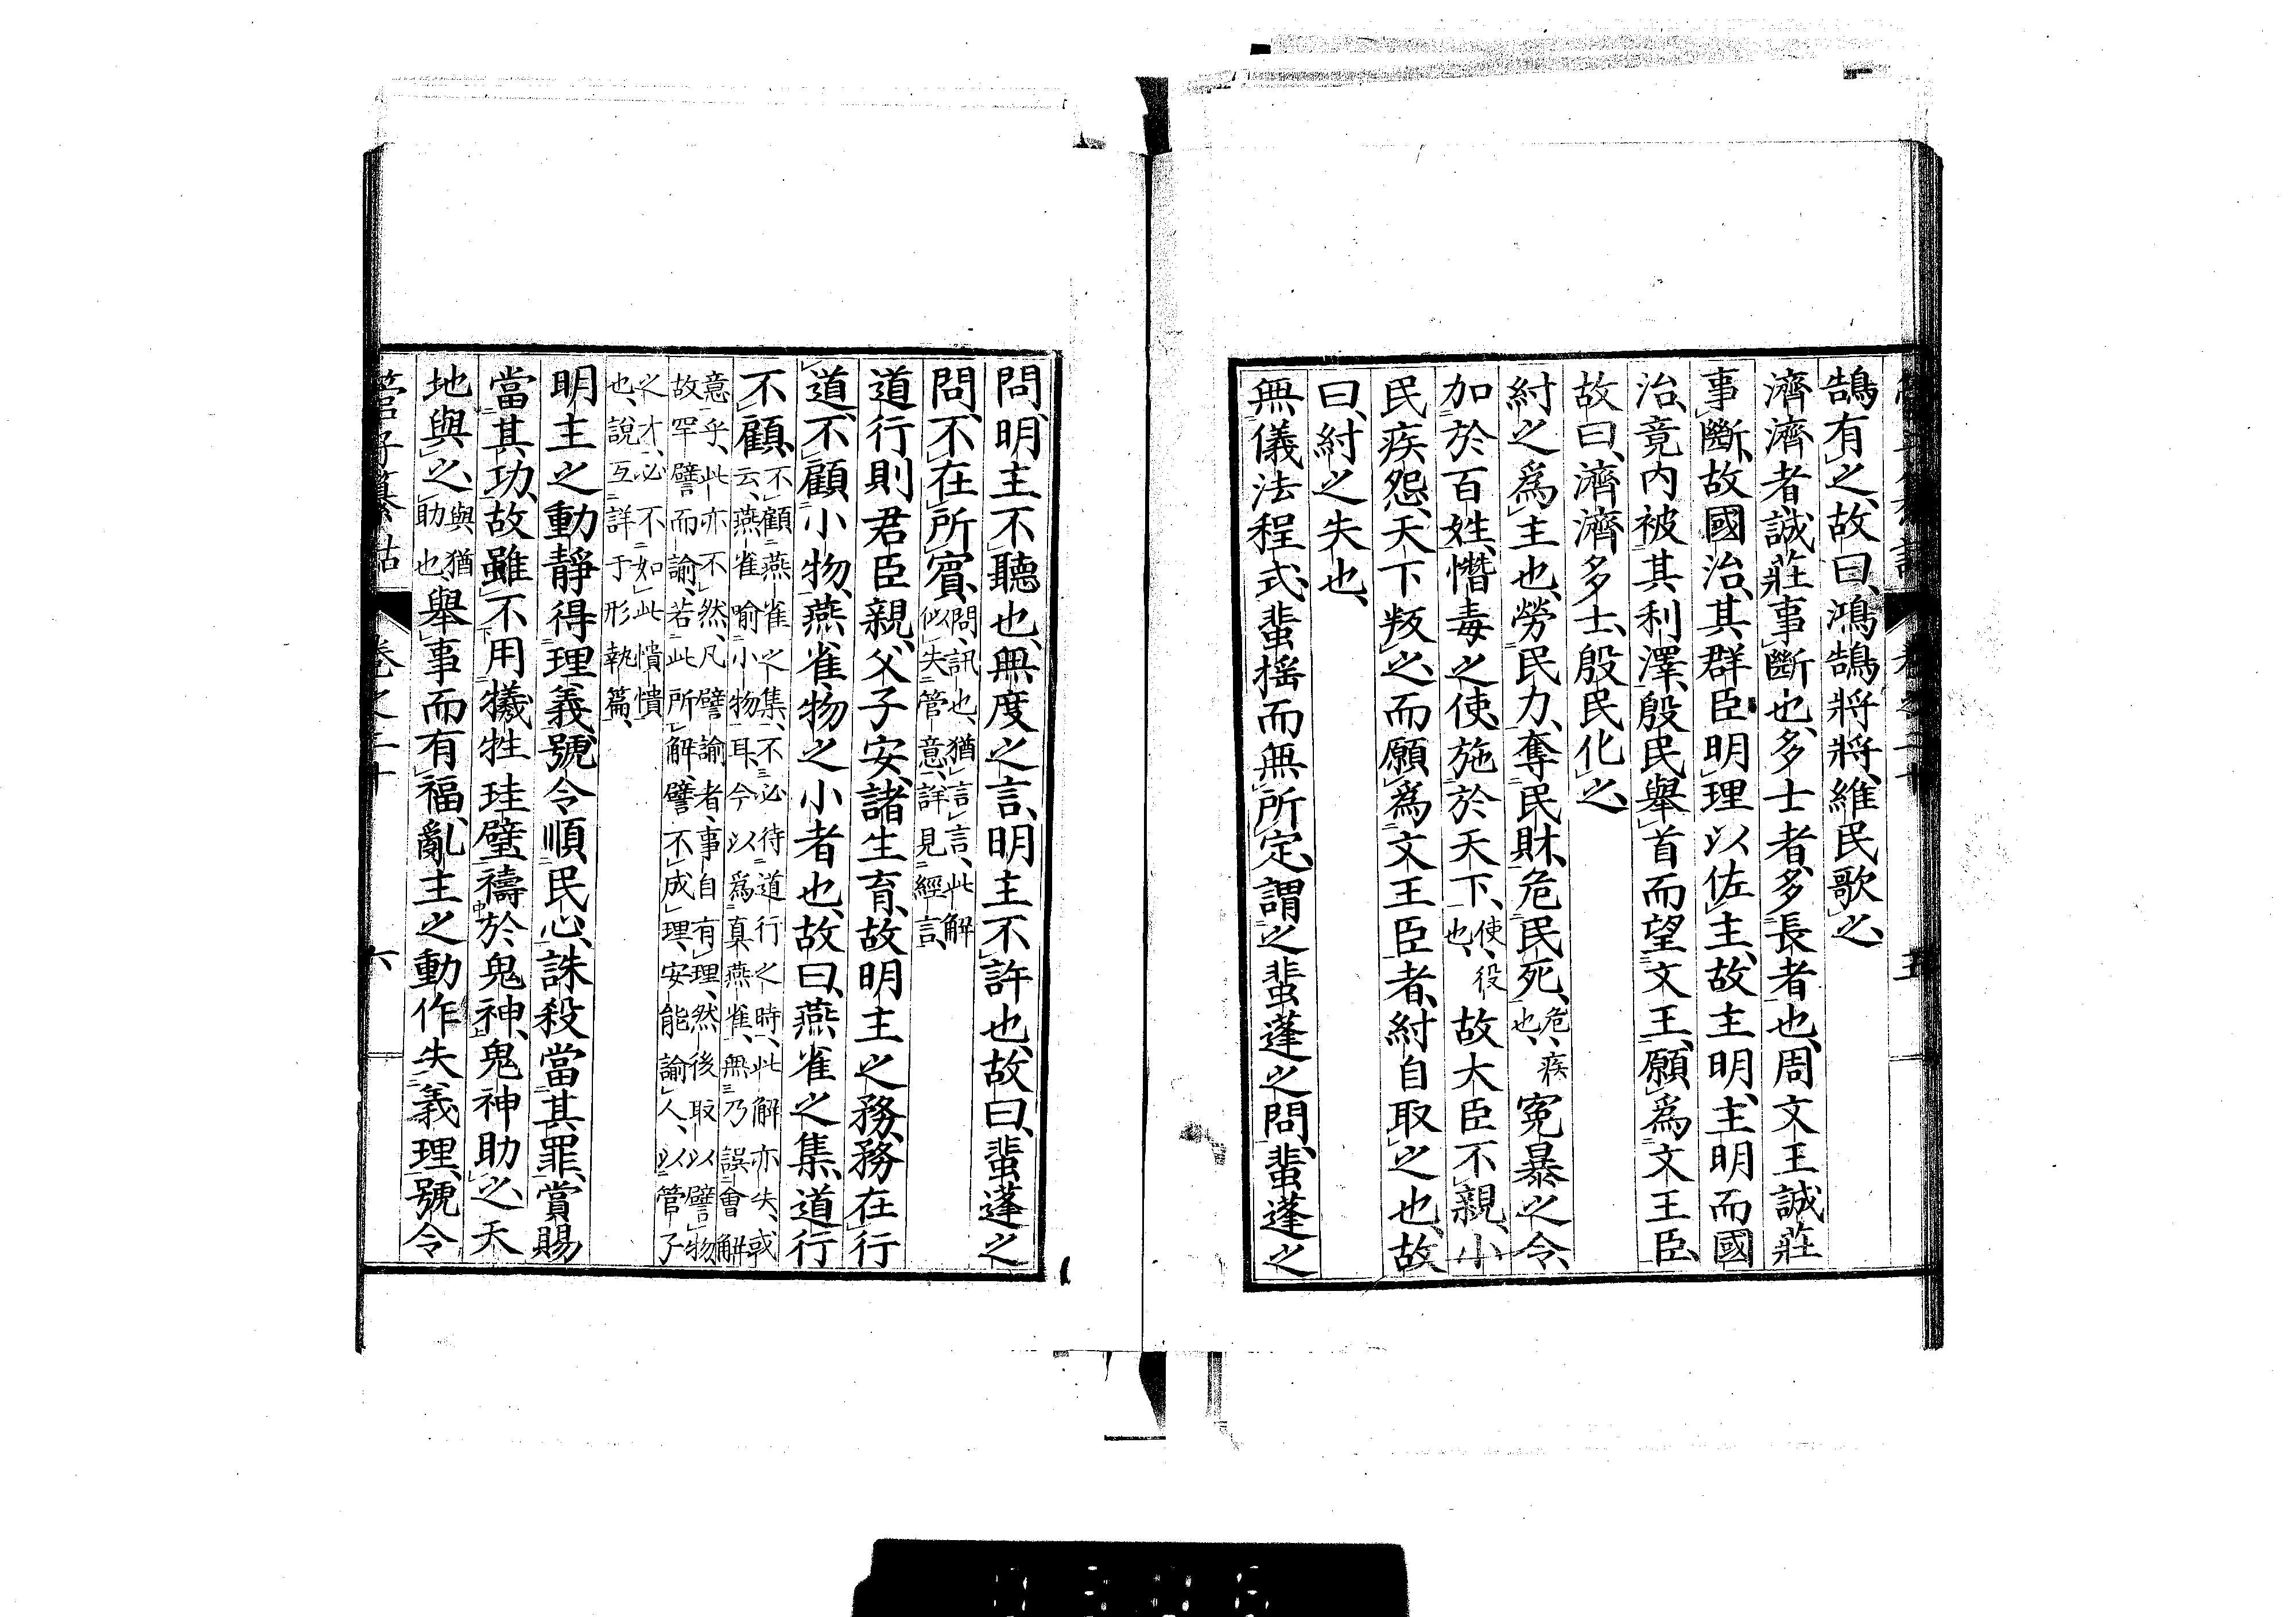 鵠有之、故曰、鴻鵠將將、維民歌之、
濟濟者、誠莊事斷也、多士者、多長者也、周文王誠莊
事斷、故國治、其群臣明理以佐主、故主明、主明而國
治、竟內被其利澤、殷民舉首而望文王、願爲文王臣、
故曰、濟濟多士、殷民化之、
紂之爲主也、勞民力、奪民財、危民死、危、疾也、冤暴之令、
加於百姓、憯毒之使、施於天下、使、役也、故大臣不親、小
民疾怨、天下叛之、而願爲文王臣者、紂自取之也、故
曰、紂之失也、
無儀法程式、蜚搖而無所定、謂之蜚蓬之問、蜚蓬之
問、明主不聽也、無度之言、明主不許也、故曰、蜚蓬之
問、不在所賓、問、訊也、猶言言、此解似失管意、詳見經言、
道行則君臣親、父子安、諸生育、故明主之務、務在行
道、不顧小物、燕雀物之小者也、故曰、燕雀之集、道行
不顧、不顧燕雀之集、不必待道行之時、此解亦失、或云、燕雀喻小物耳、今以爲真燕雀、無乃誤會解
意乎、此亦不然、凡譬諭者、事自有理、然後取以譬物、故罕譬而諭、若此所解、譬不成理、安能諭人、以管子
之才、必不如此憒憒也、說互詳于形埶篇、
明主之動靜得理義、號令順民心、誅殺當其罪、賞賜
當其功、故雖不用犧牲珪璧禱於鬼神、鬼神助之、天
地與之、與猶助也、舉事而有福、亂主之動作失義理、號令
管子纂詁 卷之二十 六